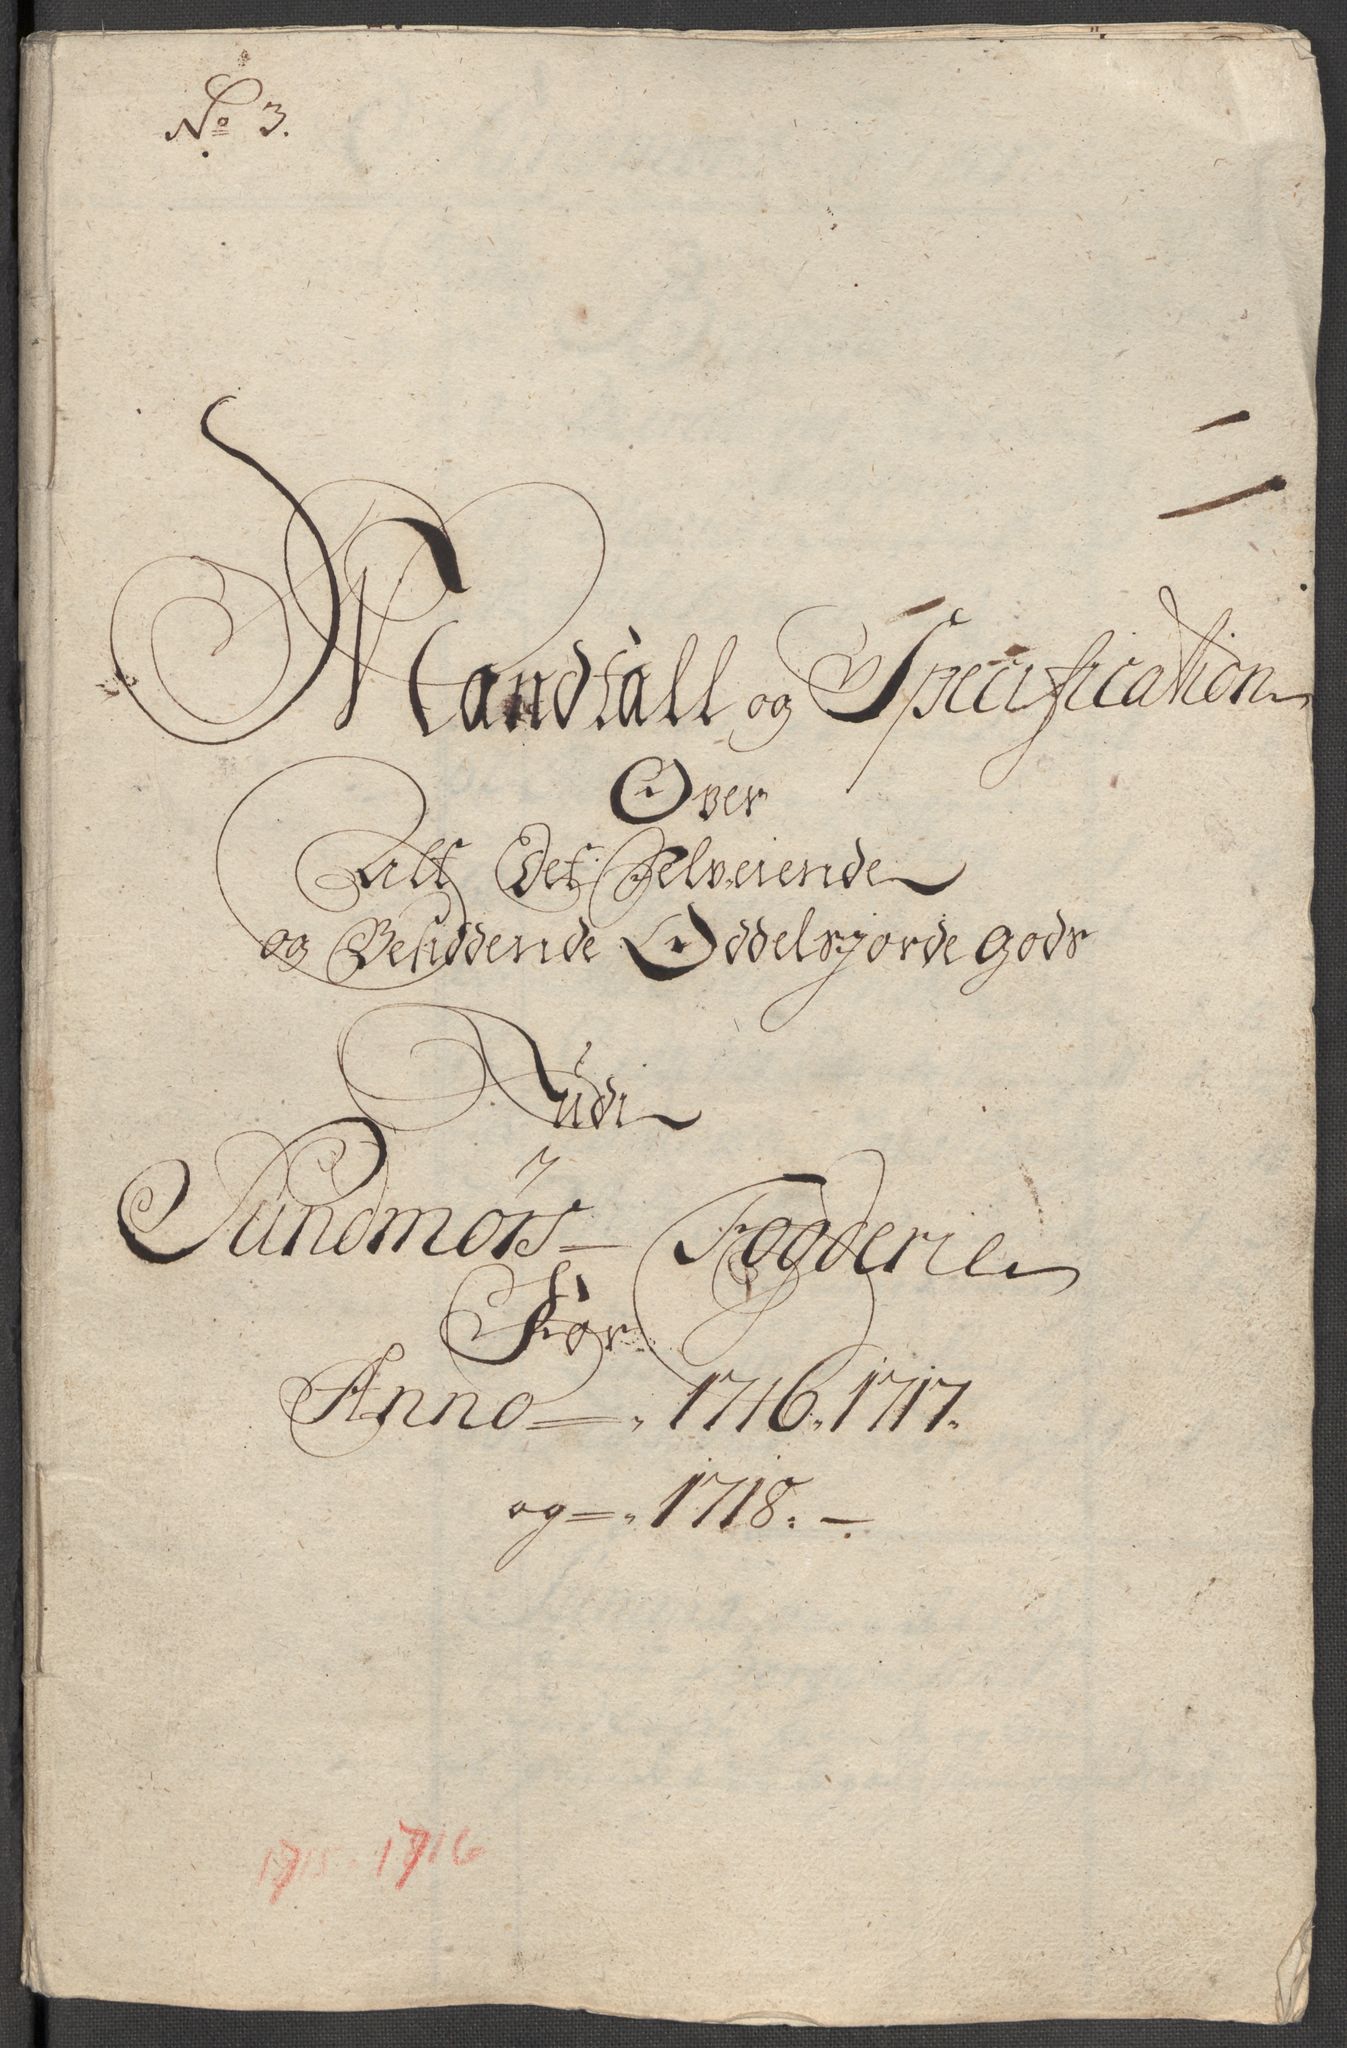 No 3.
Mandtall og Specification
Over
Alt Det Selveiende
og Besiddende Oddelsjorde gods
Udi
Sundmørs Fogderie
For
Anno 1716. 1717.
og 1718.
1715 - 1716